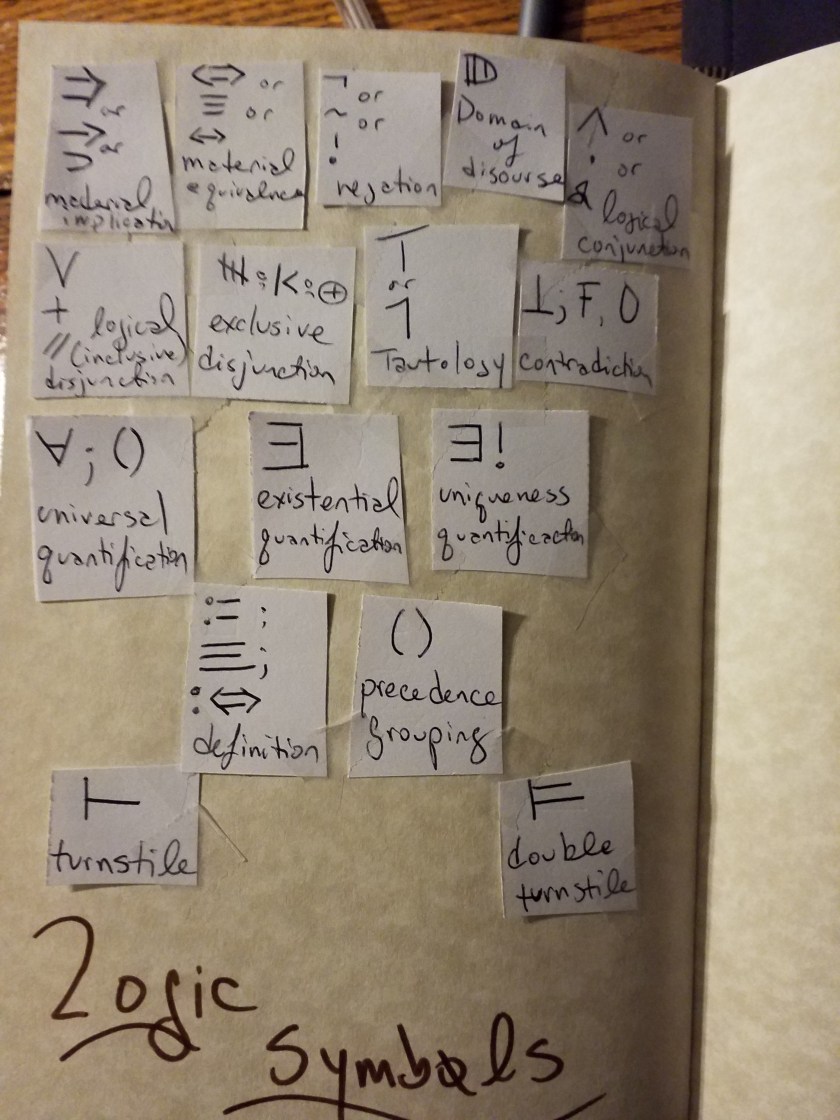 ⇒ or
→ or
⊃
material
implication
⇔ or
≡ or
↔
material
equivalence
¬ or
~ or
!
negation
𝔻
Domain
of
discourse
∧ or
· or
& logical
conjunction
∨
+ logical
// (inclusive)
disjunction
exclusive
disjunction
T
or
1
Tautology
⊥; F, 0
contradiction
∀; ()
universal
quantification
∃
existential
quantification
∃!
uniqueness
quantification
:= ;
≡ ;
:⇔
definition
( )
precedence
grouping
⊢
turnstile
⊨
double
turnstile
Logic
symbols